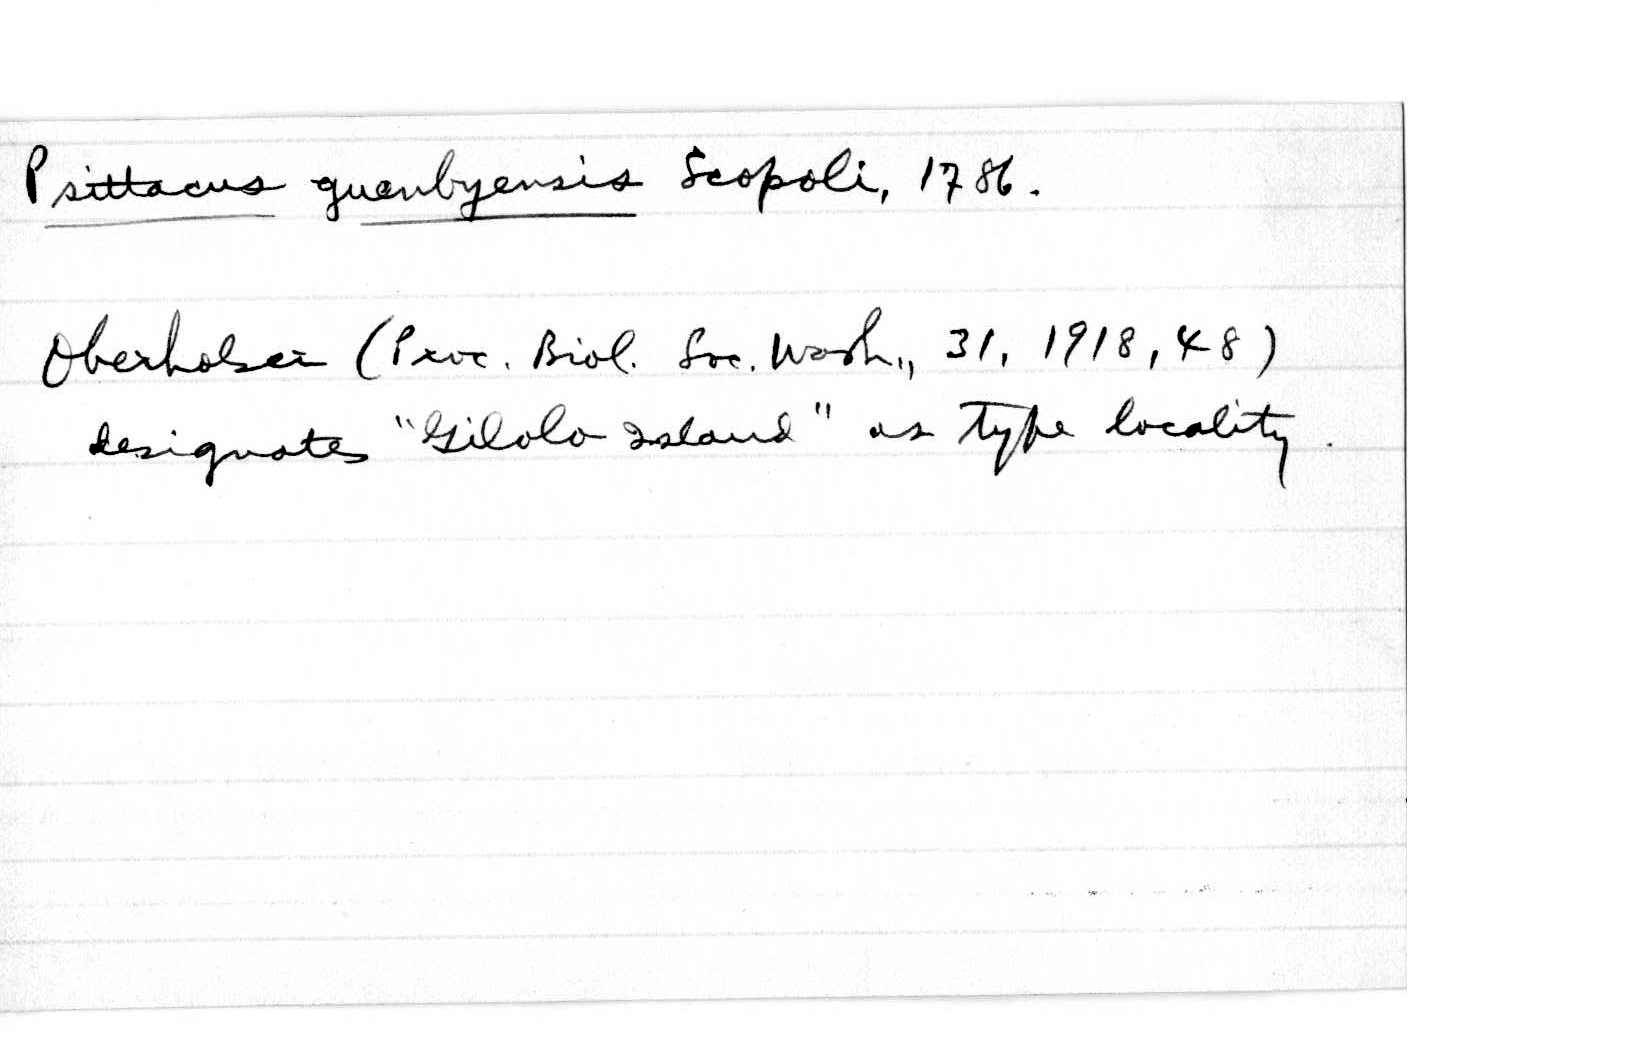 Psittacus guenbyensis Scopoli, 1786.
Oberholser (Proc. Biol. Soc. Wash., 31, 1918, 48)
designates "Gilolo Island" as type locality.